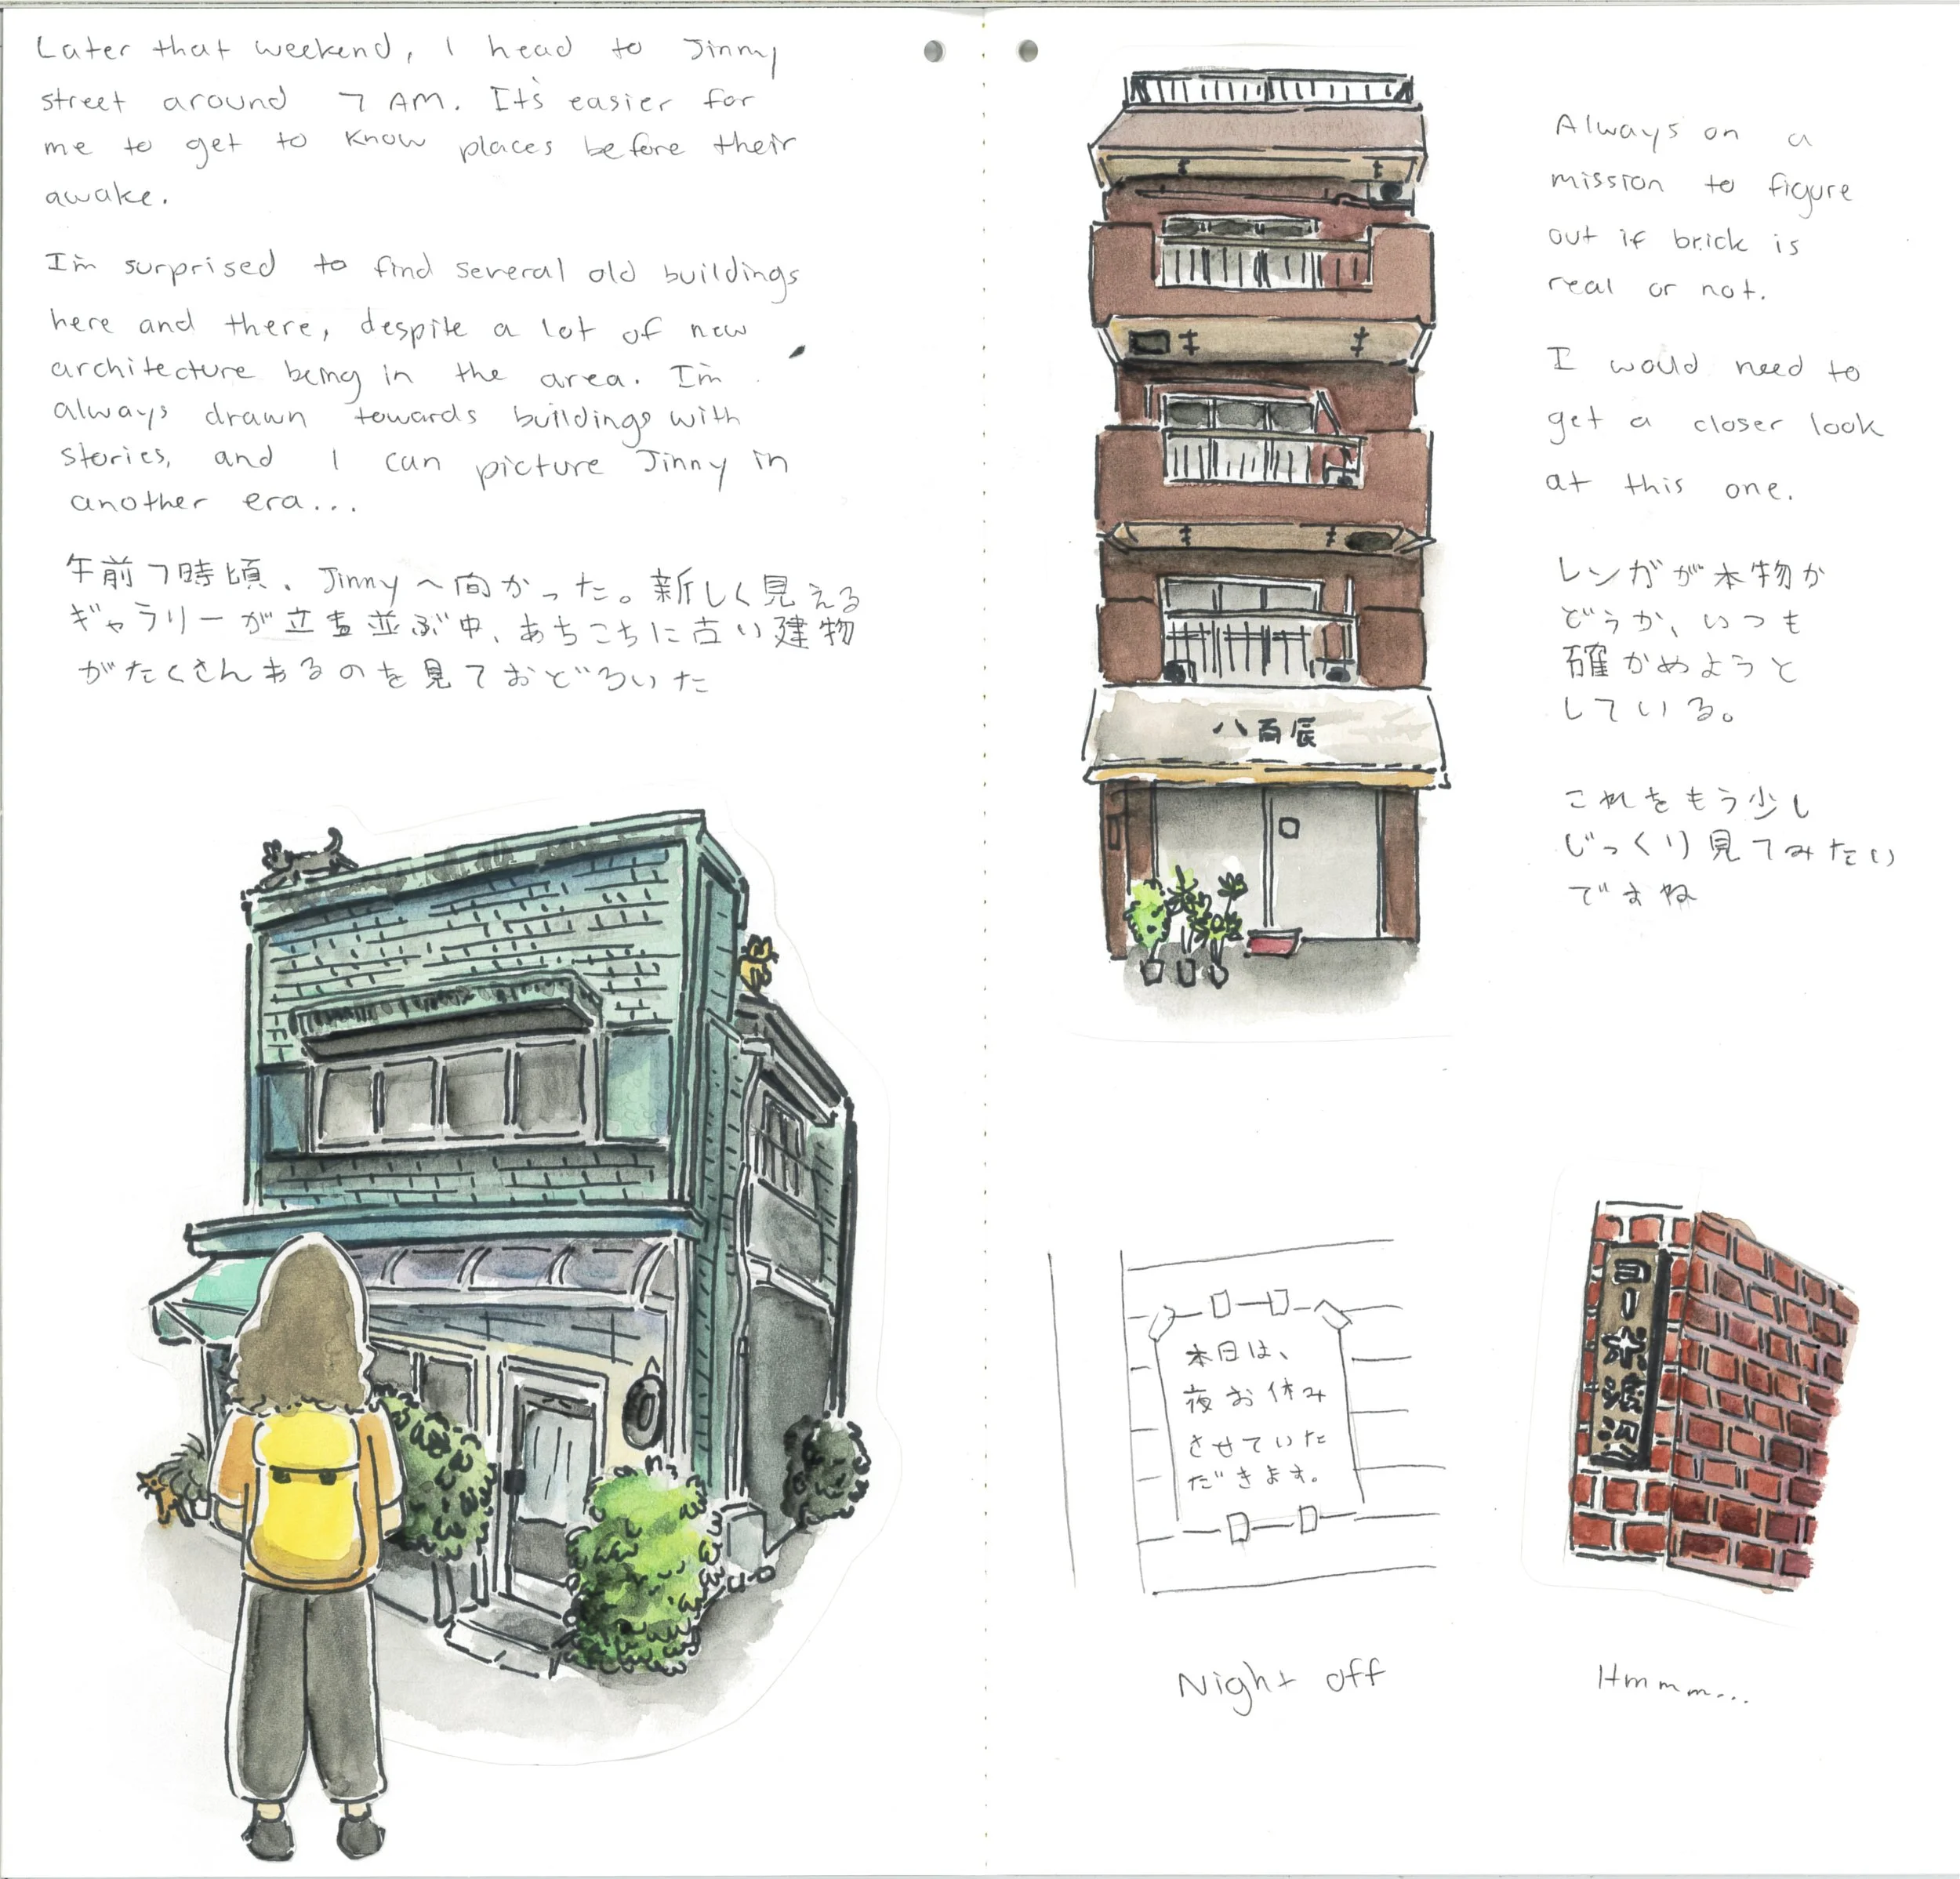 Later that weekend, I head to Jinny
street around 7 AM. It's easier for
me to get to know places before their
awake.
I'm surprised to find several old buildings
here and there, despite a lot of new
architecture being in the area. I'm
always drawn towards buildings with
stories, and I can picture Jinny in
another era...
午前7時頃、Jinnyへ向かった。新しく見える
ギャラリーが立ち並ぶ中、あちこちに古い建物
がたくさんあるのを見ておどろいた
八百辰
Always on a
mission to figure
out if brick is
real or not.
I would need to
get a closer look
at this one.
レンガが本物か
どうか、いつも
確かめようと
している。
これをもう少し
じっくり見てみたい
ですね
本日は、
夜お休み
させていた
だきます。
Night off
Hmmm...